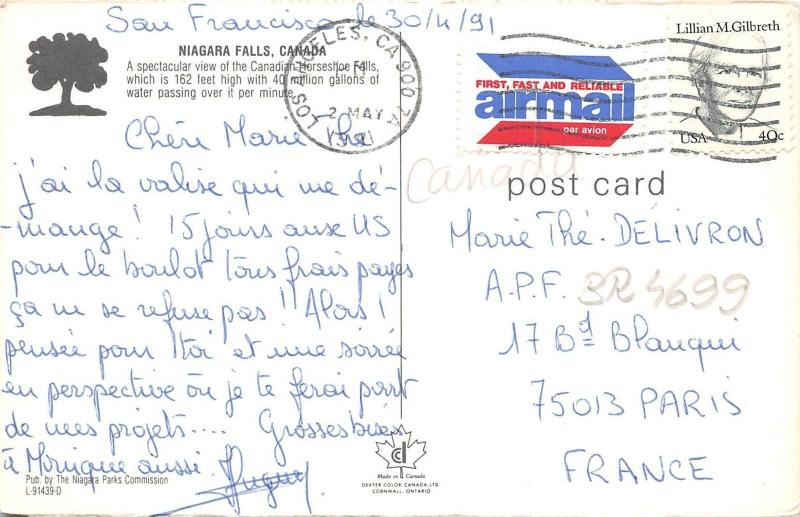 San Francisco le 30/4/91
NIAGARA FALLS, CANADA
A spectacular view of the Canadian Horseshoe Falls,
which is 162 feet high with 40 million gallons of
water passing over it per minute.
Chéri Marie
j'ai la valise qui me dé-
mange ! 15 jours aux US
pour le boulot tous frais payés
ça ne se refuse pas !! Alors !
pensée pour toi et une soirée
en perspective où je te ferai part
de mes projets.... Grosses bises
à Monique aussi.
Pub. by The Niagara Parks Commission
L-91439-D
LOS ANGELES, CA 900
2 MAY
1991
FIRST, FAST AND RELIABLE
airmail
par avion
Lillian M. Gilbreth
USA 40c
Canada
post card
Marie Thé. DELIVRON
A.P.F. BR 4699
17 Bd Blanqui
75013 PARIS
FRANCE
Made in Canada
DEXTER COLOR CANADA, LTD
CORNWALL, ONTARIO